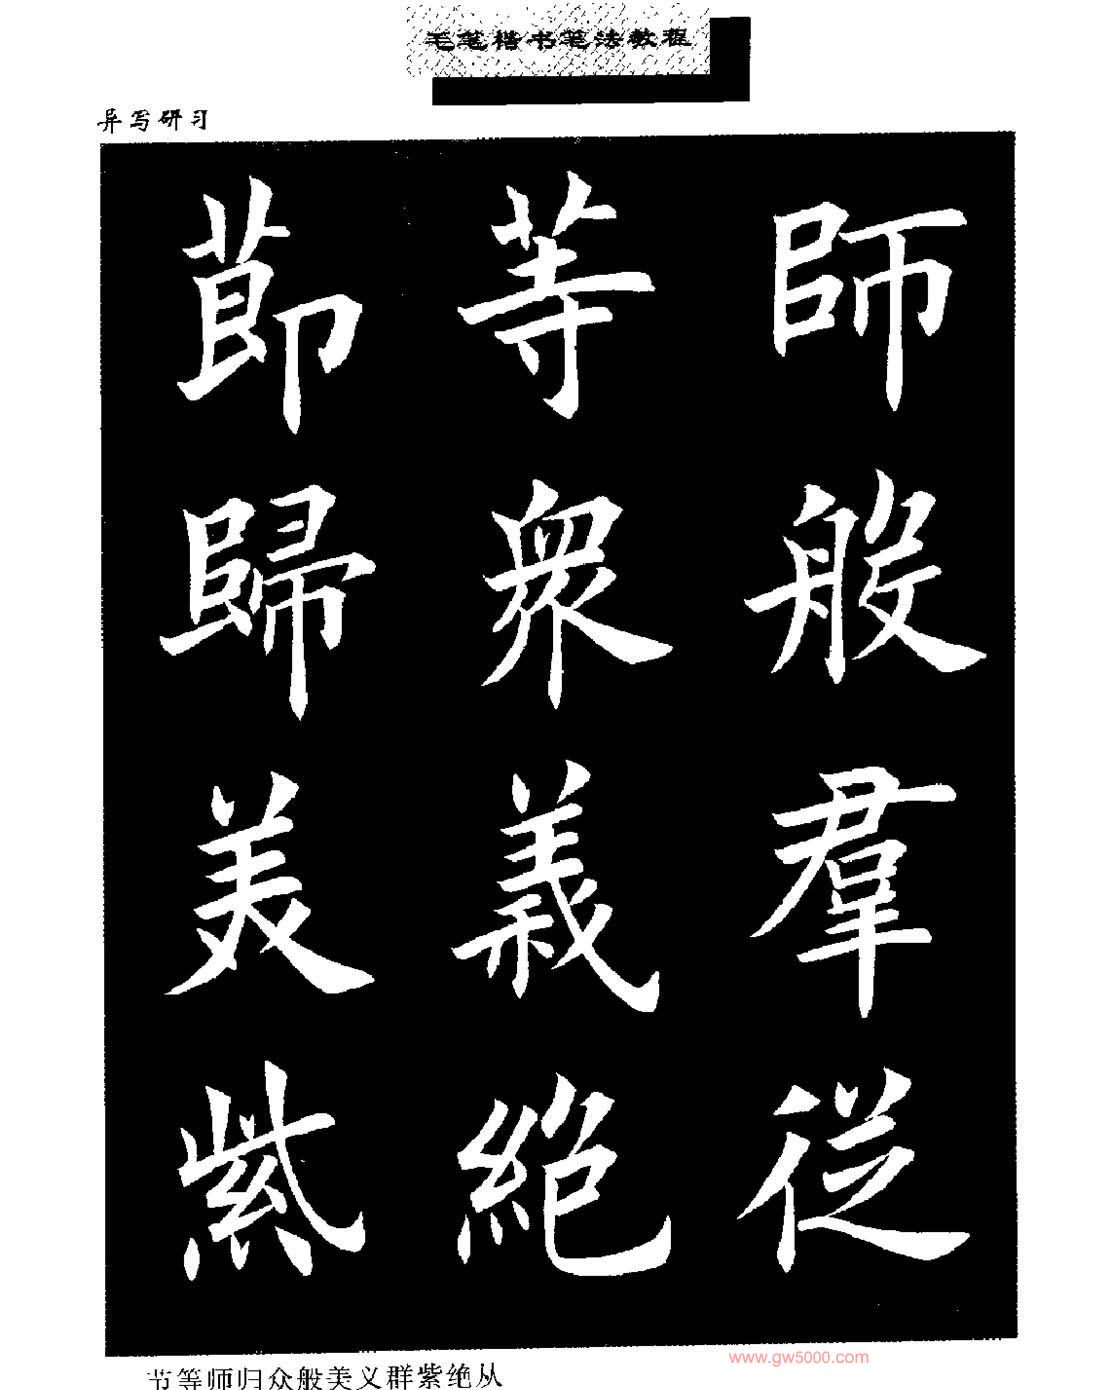 毛笔楷书笔法教程
异写研习
莭等師
歸衆般
美義羣
紫絶從
节等师归众般美义群紫绝从
www.gw5000.com